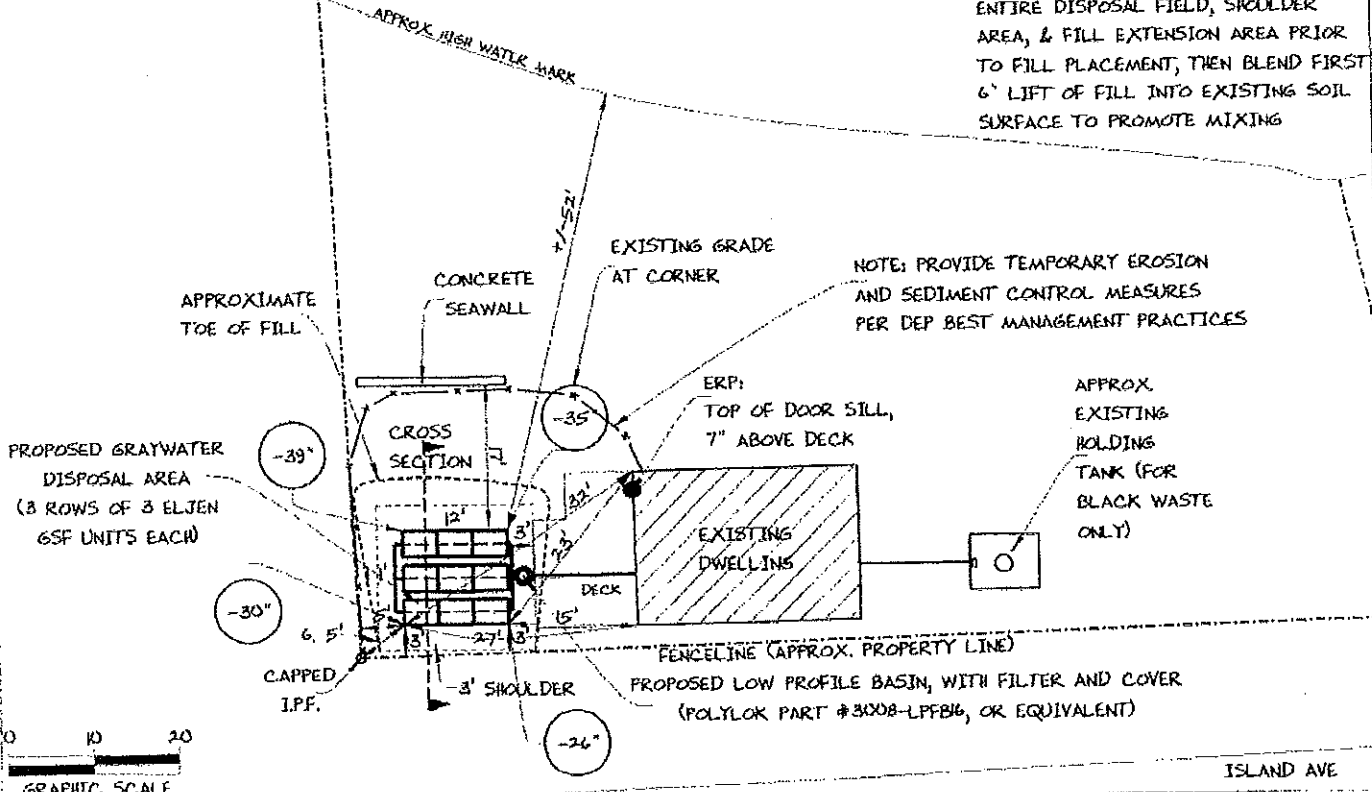 ENTIRE DISPOSAL FIELD, SHOULDER
AREA, & FILL EXTENSION AREA PRIOR
TO FILL PLACEMENT, THEN BLEND FIRST
6" LIFT OF FILL INTO EXISTING SOIL
SURFACE TO PROMOTE MIXING
APPROX. HIGH WATER MARK
+/-52'
EXISTING GRADE
AT CORNER
CONCRETE
SEAWALL
NOTE: PROVIDE TEMPORARY EROSION
AND SEDIMENT CONTROL MEASURES
PER DEP BEST MANAGEMENT PRACTICES
APPROXIMATE
TOE OF FILL
ERP:
TOP OF DOOR SILL,
7" ABOVE DECK
APPROX.
EXISTING
HOLDING
TANK (FOR
BLACK WASTE
ONLY)
-35"
CROSS
SECTION
17'
-39"
PROPOSED GRAYWATER
DISPOSAL AREA
(3 ROWS OF 3 ELJEN
GSF UNITS EACH)
32'
12'
3'
23'
EXISTING
DWELLING
DECK
-30"
6.5'
3'
27'
3'
15'
CAPPED
I.P.F.
3' SHOULDER
FENCELINE (APPROX. PROPERTY LINE)
PROPOSED LOW PROFILE BASIN, WITH FILTER AND COVER
(POLYLOK PART #3008-LPFB16, OR EQUIVALENT)
-26"
0 10 20
GRAPHIC SCALE
ISLAND AVE